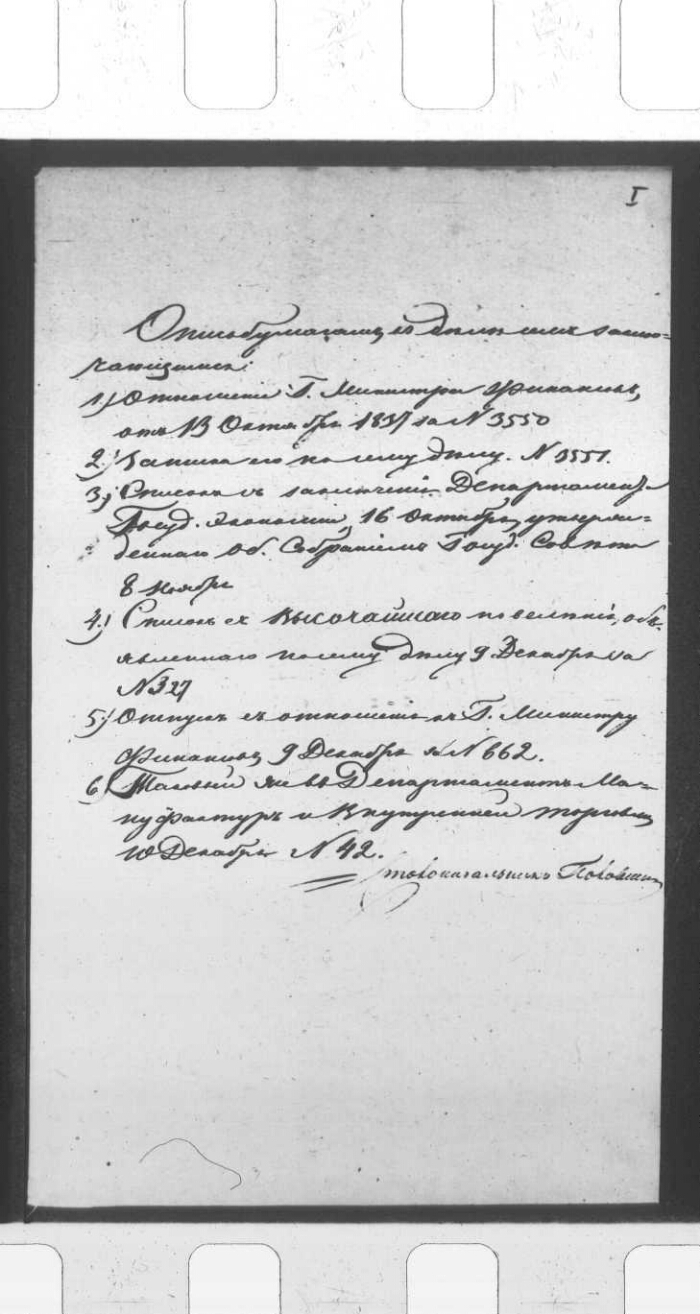 I
Опись бумагамъ, въ дѣлѣ семъ заклю-
чающимся:
1.) Отношеніе Г. Министра Финансовъ,
отъ 13 Октября 1837 за N 3550
2.) Записка его по сему дѣлу. N 3551.
3.) Списокъ съ заключенія Департамента
Госуд. Экономіи, 16 Октября, утверж-
деннаго Об. Собраніемъ Госуд. Совѣта
8 Ноября
4.) Списокъ съ Высочайшаго повелѣнія, объ-
явленнаго по сему дѣлу 9 Декабря за
N 327
5.) Отпускъ съ отношенія къ Г. Министру
Финансовъ, 9 Декабря за N 662.
6) Таковый же въ Департаментъ Ма-
нуфактуръ и Внутренней торговли
10 Декабря N 42.
Столоначальникъ